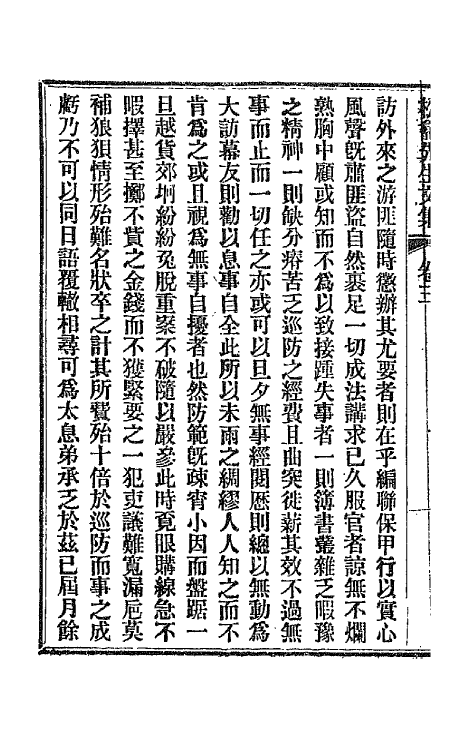 訪外來之游匪隨時懲辦其尤要者則在乎編聯保甲行以實心
風聲旣肅匪盜自然裹足一切成法講求已久服官者諒無不爛
熟胸中顧或知而不爲以致接踵失事者一則簿書叢雜乏暇豫
之精神一則缺分瘠苦乏巡防之經費且曲突徙薪其效不過無
事而止而一切任之亦或可以旦夕無事經閱歷則總以無動爲
大訪幕友則勸以息事自全此所以未雨之綢繆人人知之而不
肯爲之或且視爲無事自擾者也然防範旣疎宵小因而盤踞一
旦越貨郊坰紛紛兔脫重案不破隨以嚴參此時覓眼購線急不
暇擇甚至擲不貲之金錢而不獲緊要之一犯吏議難寬漏卮莫
補狼狽情形殆難名狀卒之計其所費殆十倍於巡防而事之成
虧乃不可以同日語覆轍相尋可爲太息弟承乏於茲已屆月餘